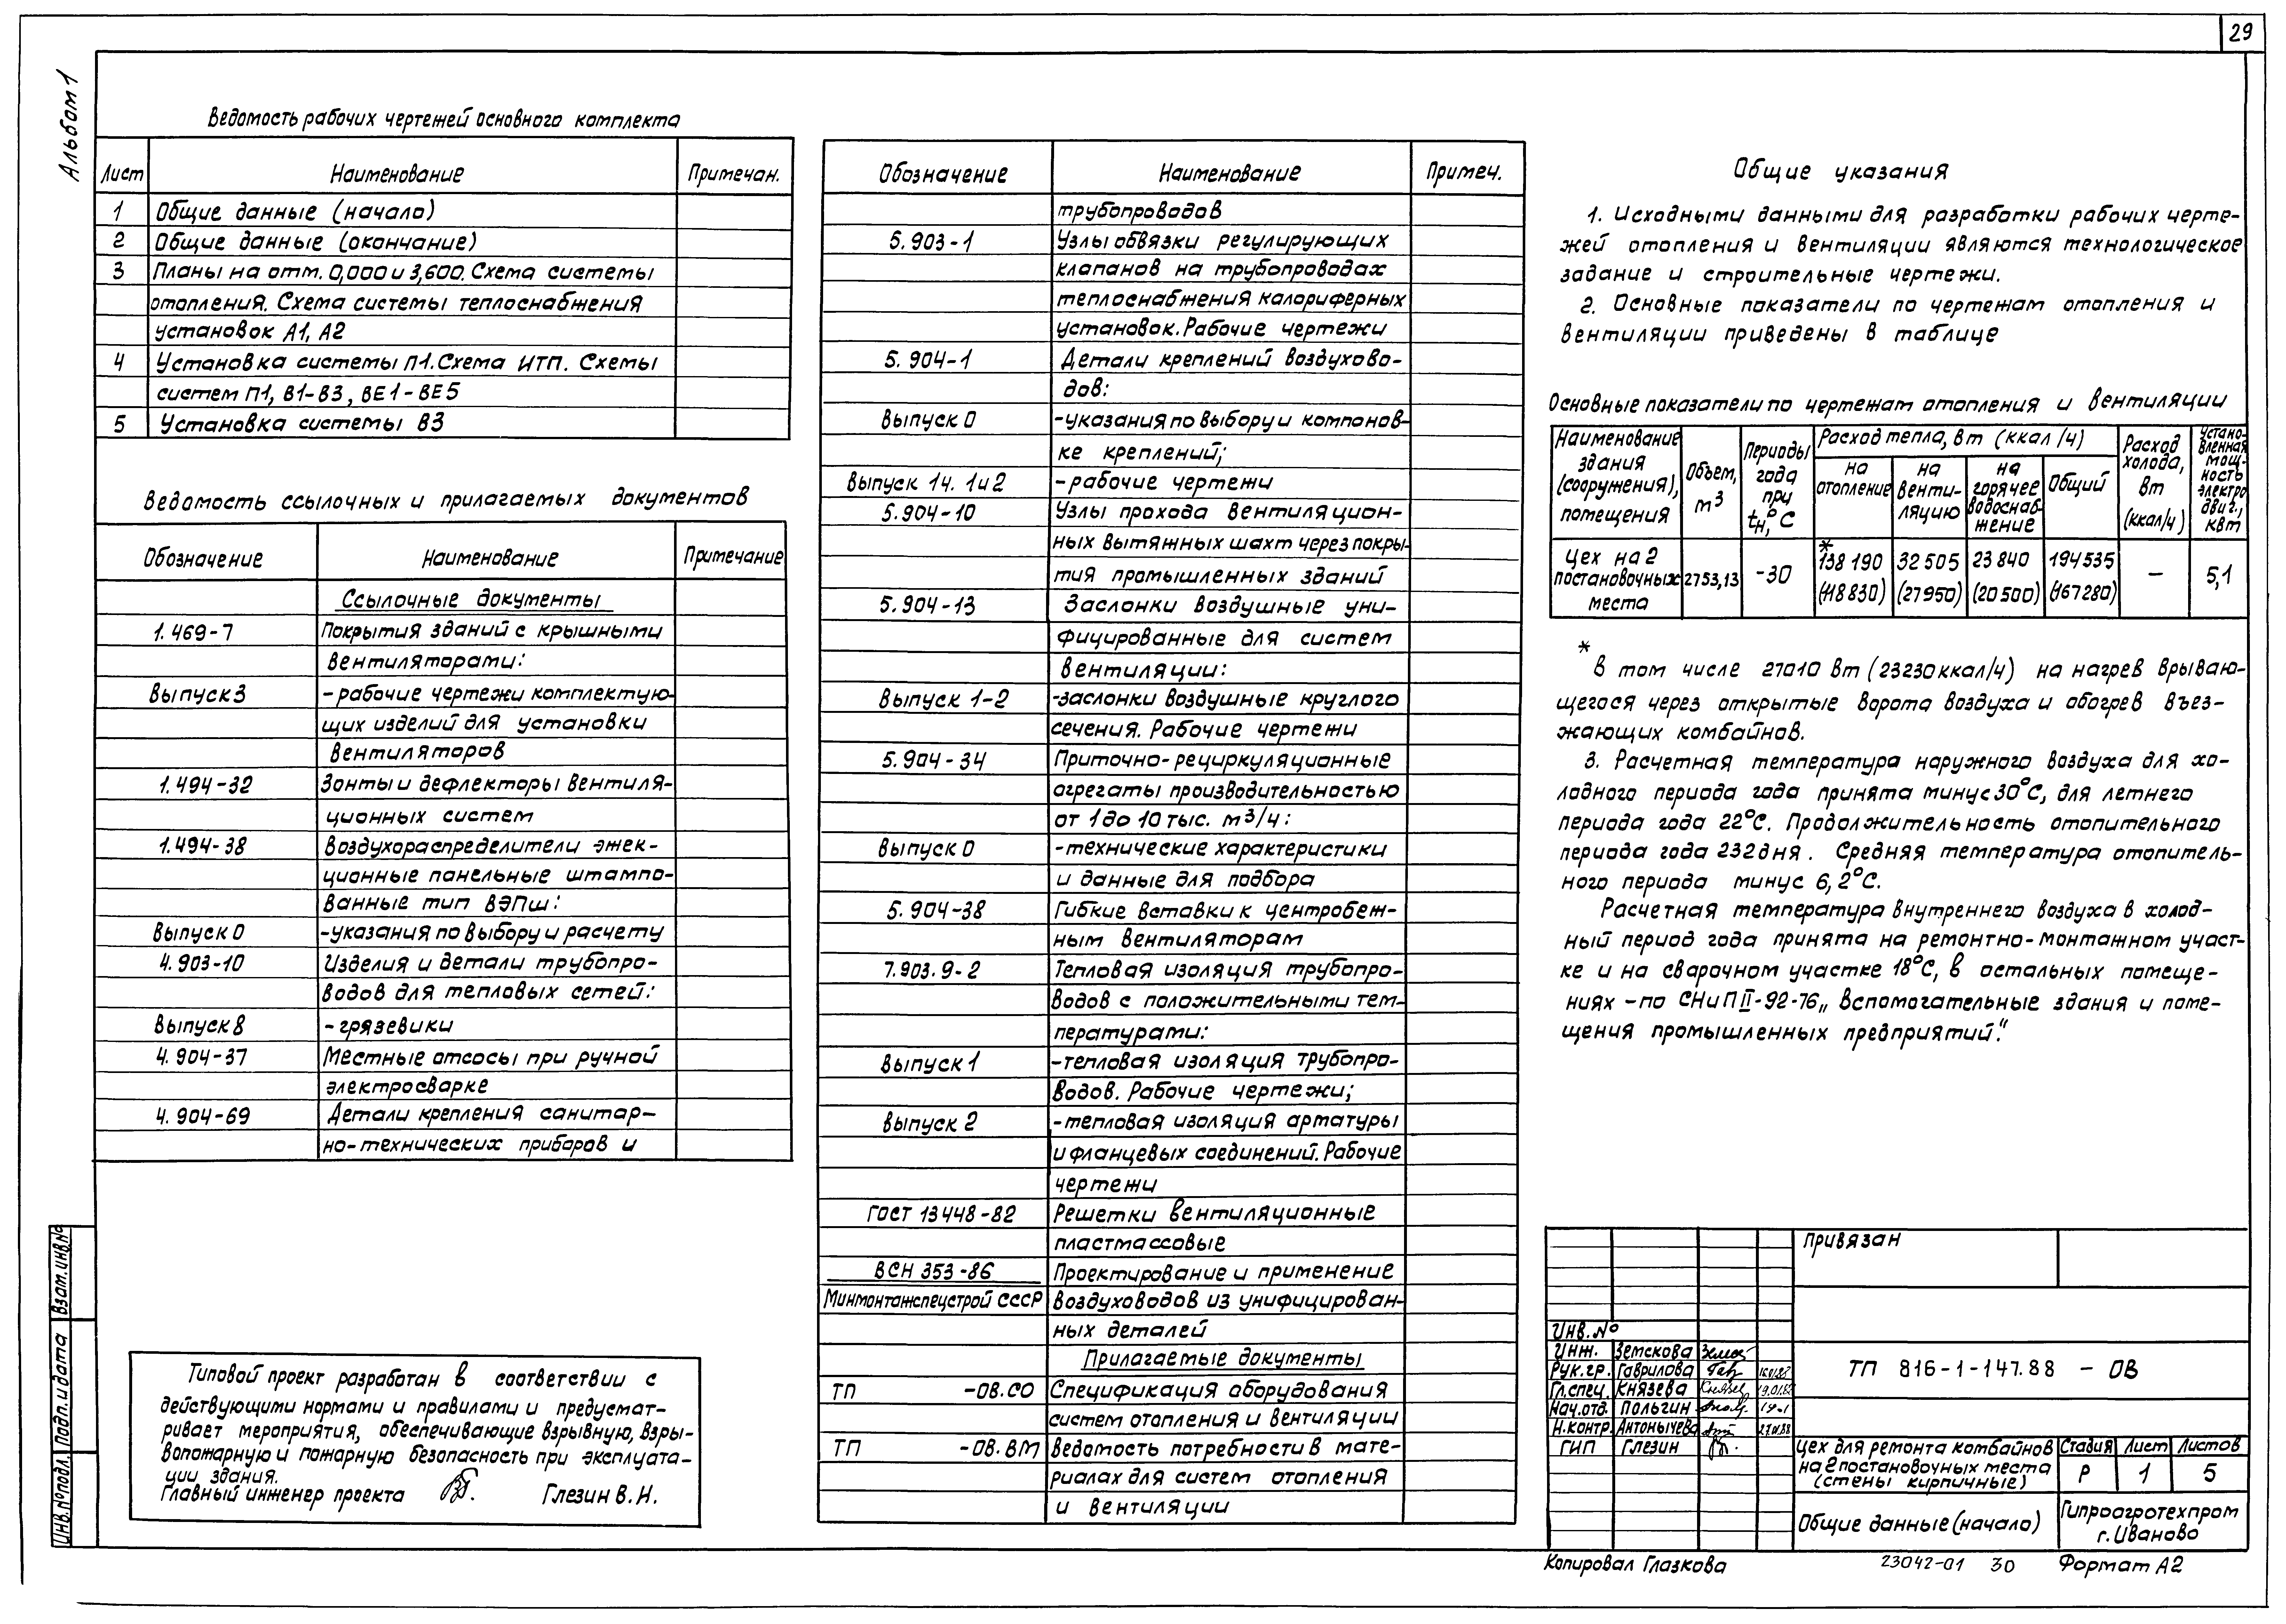 29
Альбом 1
Ведомость рабочих чертежей основного комплекта
Лист Наименование Примечан.
1 Общие данные (начало)
2 Общие данные (окончание)
3 Планы на отм. 0,000 и 3,600. Схема системы
отопления. Схема системы теплоснабжения
установок А1, А2
4 Установка системы П1. Схема ИТП. Схемы
систем П1, В1-В3, ВЕ1-ВЕ5
5 Установка системы В3
Ведомость ссылочных и прилагаемых документов
Обозначение Наименование Примечание
Ссылочные документы
1.469-7 Покрытия зданий с крышными
вентиляторами:
Выпуск 3 -рабочие чертежи комплектую-
щих изделий для установки
вентиляторов
1.494-32 Зонты и дефлекторы вентиля-
ционных систем
1.494-38 Воздухораспределители эжек-
ционные панельные штампо-
ванные тип ВЭПш:
Выпуск 0 -указания по выбору и расчету
4.903-10 Изделия и детали трубопро-
водов для тепловых сетей:
Выпуск 8 -грязевики
4.904-37 Местные отсосы при ручной
электросварке
4.904-69 Детали крепления санитар-
но-технических приборов и
Типовой проект разработан в соответствии с
действующими нормами и правилами и предусмат-
ривает мероприятия, обеспечивающие взрывную, взры-
вопожарную и пожарную безопасность при эксплуата-
ции здания.
Главный инженер проекта Глезин В.И.
Обозначение Наименование Примеч.
трубопроводов
5.903-1 Узлы обвязки регулирующих
клапанов на трубопроводах
теплоснабжения калориферных
установок. Рабочие чертежи
5.904-1 Детали креплений воздухово-
дов:
Выпуск 0 -указания по выбору и компонов-
ке креплений;
Выпуск 14. 1и2 -рабочие чертежи
5.904-10 Узлы прохода вентиляцион-
ных вытяжных шахт через покры-
тия промышленных зданий
5.904-13 Заслонки воздушные уни-
фицированные для систем
вентиляции:
Выпуск 1-2 -заслонки воздушные круглого
сечения. Рабочие чертежи
5.904-34 Приточно-рециркуляционные
агрегаты производительностью
от 1 до 10 тыс. м³/ч:
Выпуск 0 -технические характеристики
и данные для подбора
5.904-38 Гибкие вставки к центробеж-
ным вентиляторам
7.903.9-2 Тепловая изоляция трубопро-
водов с положительными тем-
пературами:
Выпуск 1 -тепловая изоляция трубопро-
водов. Рабочие чертежи;
Выпуск 2 -тепловая изоляция арматуры
и фланцевых соединений. Рабочие
чертежи
ГОСТ 13448-82 Решетки вентиляционные
пластмассовые
ВСН 353-86 Проектирование и применение
Минмонтажспецстрой СССР воздуховодов из унифицирован-
ных деталей
Прилагаемые документы
ТП -ОВ.СО Спецификация оборудования
систем отопления и вентиляции
ТП -ОВ.ВМ Ведомость потребности в мате-
риалах для систем отопления
и вентиляции
Общие указания
1. Исходными данными для разработки рабочих черте-
жей отопления и вентиляции являются технологическое
задание и строительные чертежи.
2. Основные показатели по чертежам отопления и
вентиляции приведены в таблице
Основные показатели по чертежам отопления и вентиляции
Наименование здания (сооружения), помещения Объем, м³ Периоды года при tн, °С Расход тепла, Вт (ккал/ч) Расход холода, Вт (ккал/ч) Установленная мощность электродвиг., кВт
на отопление на вентиляцию на горячее водоснабжение Общий
Цех на 2 постановочных места 2753,13 -30 *138 190 (118 830) 32 505 (27950) 23 840 (20 500) 194 535 (167280) — 5,1
* В том числе 27010 Вт (23230 ккал/ч) на нагрев врываю-
щегося через открытые ворота воздуха и обогрев въез-
жающих комбайнов.
3. Расчетная температура наружного воздуха для хо-
лодного периода года принята минус 30°С, для летнего
периода года 22°С. Продолжительность отопительного
периода года 232 дня. Средняя температура отопитель-
ного периода минус 6,2°С.
Расчетная температура внутреннего воздуха в холод-
ный период года принята на ремонтно-монтажном участ-
ке и на сварочном участке 18°С, в остальных помеще-
ниях - по СНиП II-92-76 „Вспомогательные здания и поме-
щения промышленных предприятий."
Привязан
Инв. №
Инж. Земскова
Рук. гр. Гаврилова
Гл. спец. Князева
Нач. отд. Польгин
Н. контр. Антонычева
ГИП Глезин
ТП 816-1-147.88 - ОВ
Цех для ремонта комбайнов
на 2 постановочных места
(стены кирпичные)
Стадия Лист Листов
Р 1 5
Общие данные (начало)
Гипроагротехпром
г. Иваново
Копировал Глазкова 23042-01 30 Формат А2
Взам. инв. №
Подп. и дата
Инв. № подл.